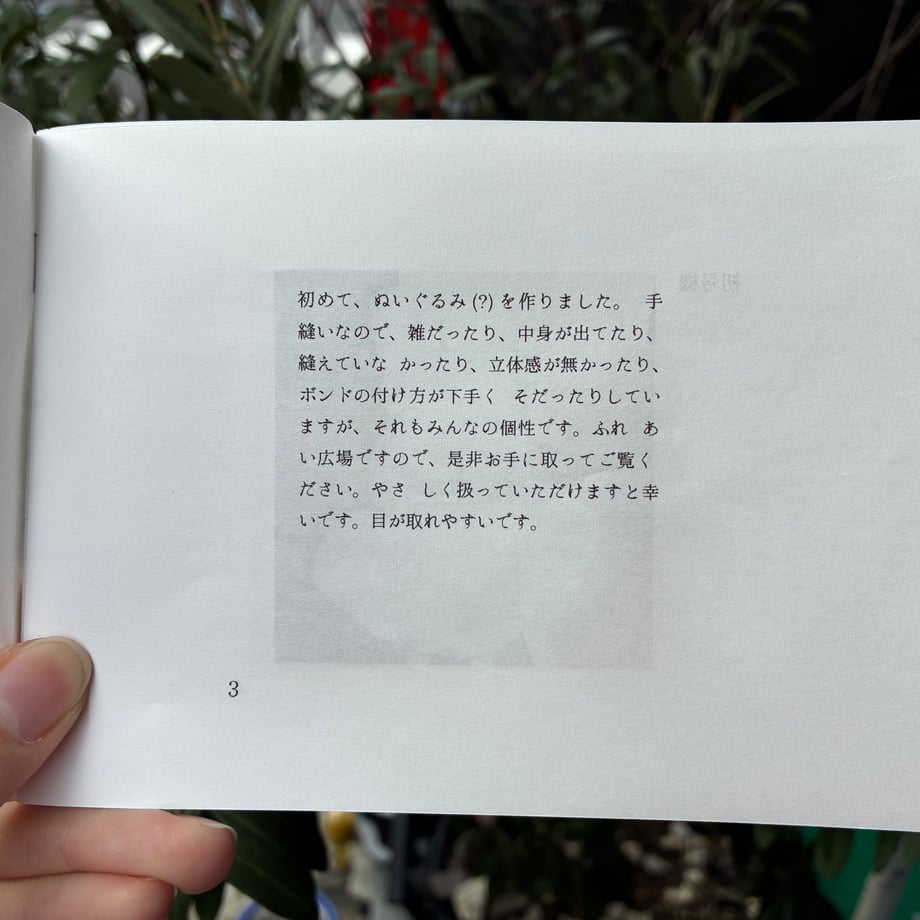 初めて、ぬいぐるみ(?)を作りました。 手
縫いなので、雑だったり、中身が出てたり、
縫えていな かったり、立体感が無かったり、
ボンドの付け方が下手く そだったりしてい
ますが、それもみんなの個性です。ふれ あ
い広場ですので、是非お手に取ってご覧く
ださい。やさ しく扱っていただけますと幸
いです。目が取れやすいです。
初号機
3